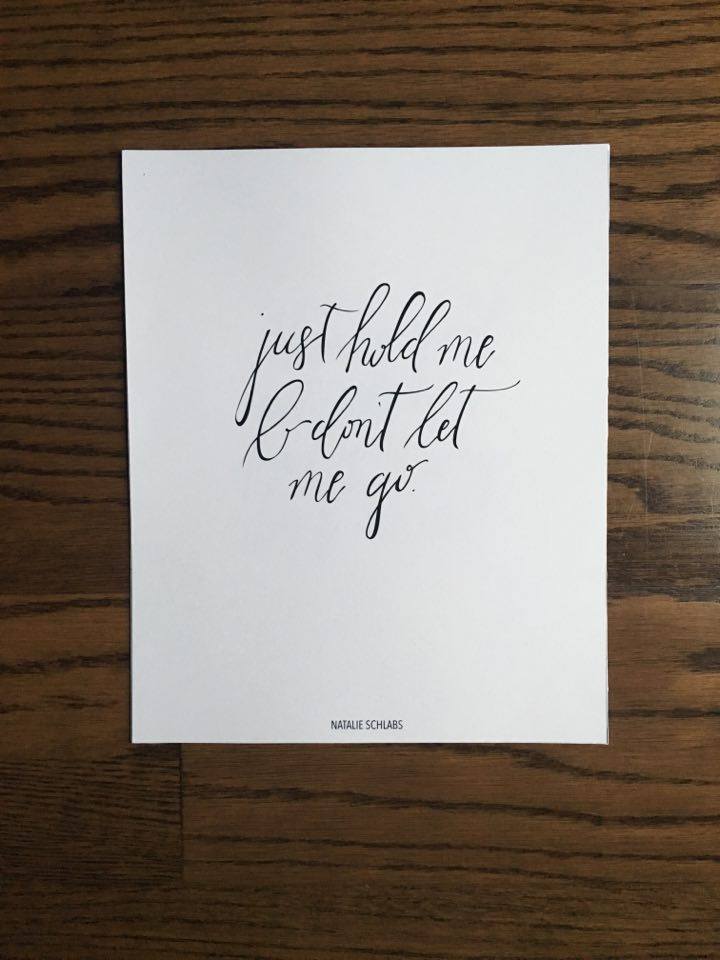 just hold me
& don't let
me go.
NATALIE SCHLABS